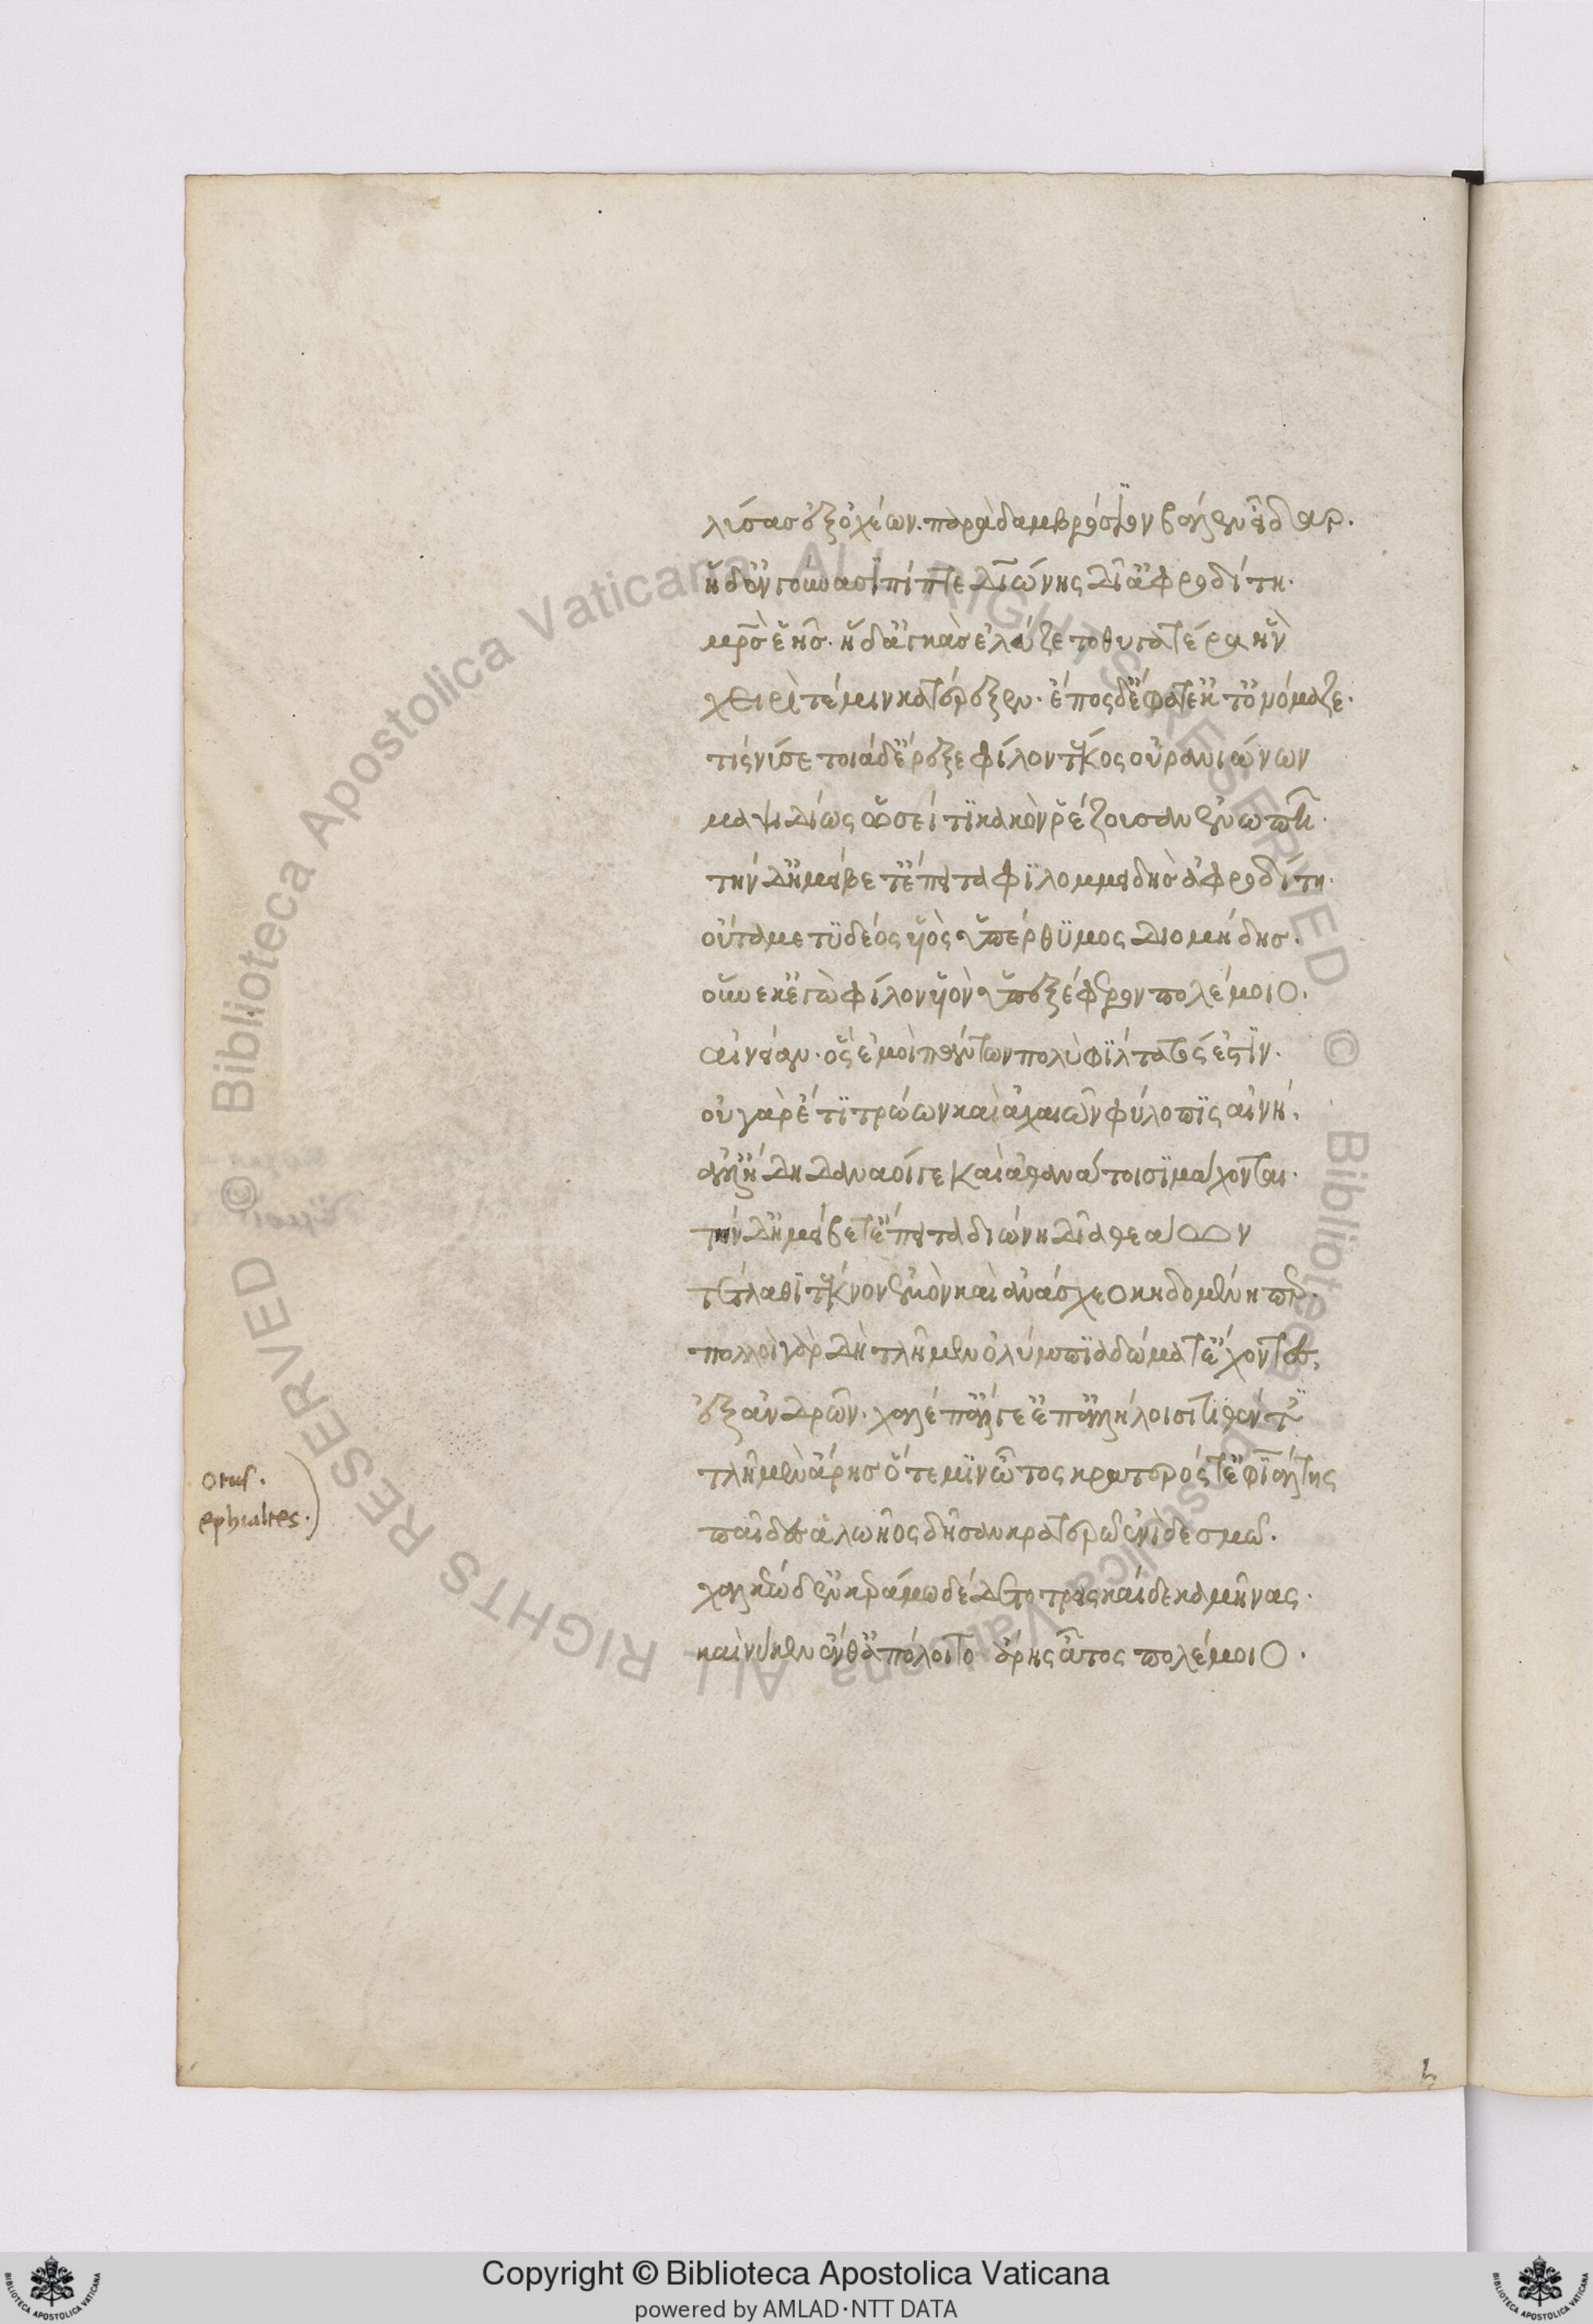 λύσασ ἐξ ὀχέων. παρὰ δ' ἀμβρόσιον βάλεν εἶδαρ.
ἡ δ' ἐν γούνασϊ πίπτε Διώνης δῖ' ἀφροδίτη.
μρ̅ὸσ ἑῆσ. ἡ δ' ἀγκὰσ ἐλάζετο θυγατέρα ἣν
χειρί τέ μιν κατέρεξεν. ἔπος δ' ἔφατ' ἔκ τ' ὀνόμαζε.
τίς νύ σε τοιάδ' ἔρεξε φίλον τέκος οὐρανιώνων
μαψιδίως ὡσεί τϊ κακὸν ῥέζουσαν ἐνωπῆ.
τὴν δ' ἠμείβετ' ἔπειτα φϊλομμειδὴσ ἀφροδίτη.
οὖτά με τϋδέος ὑϊὸς ὑπέρθϋμος Διομήδησ.
οὕνεκ' ἐγὼ φίλον ὑϊὸν ὑπεξέφερον πολέμοιο.
αἰνείαν. ὃς ἐμοὶ πάντων πολὺ φίλτατός ἐστϊν.
οὐ γὰρ ἔτϊ τρώων καὶ ἀχαιῶν φύλοπϊς αἰνή.
ἀλλ' ἤδη Δαναοί γε καὶ ἀθανάτοισϊ μάχονται.
τὴν δ' ἠμείβετ' ἔπειτα διώνη δῖα θεάων
τέτλαθϊ τέκνον ἐμὸν καὶ ἀνάσχεο κηδομένη περ.
πολλοὶ γὰρ Δὴ τλῆμεν ὀλύμπϊα δώματ' ἔχοντες,
ἐξ ἀνδρῶν. χαλέπ' ἄλγε' ἐπ' ἀλλήλοισι τιθέντες
τλῆ μὲν ἄρησ ὅτε μϊν ὦτος κρατερός τ' ἐφϊάλτης
παῖδες ἀλωῆος δῆσαν κρατερῶ ἐνὶ δεσμῶ.
χαλκέω δ' ἐν κεράμω δέδετο τρεισκαίδεκα μῆνας.
καὶ νύ κεν ἔνθ' ἀπόλοιτο ἄρης ἆτος πολέμοιο.
otus.
ephialtes.
Copyright © Biblioteca Apostolica Vaticana
powered by AMLAD·NTT DATA